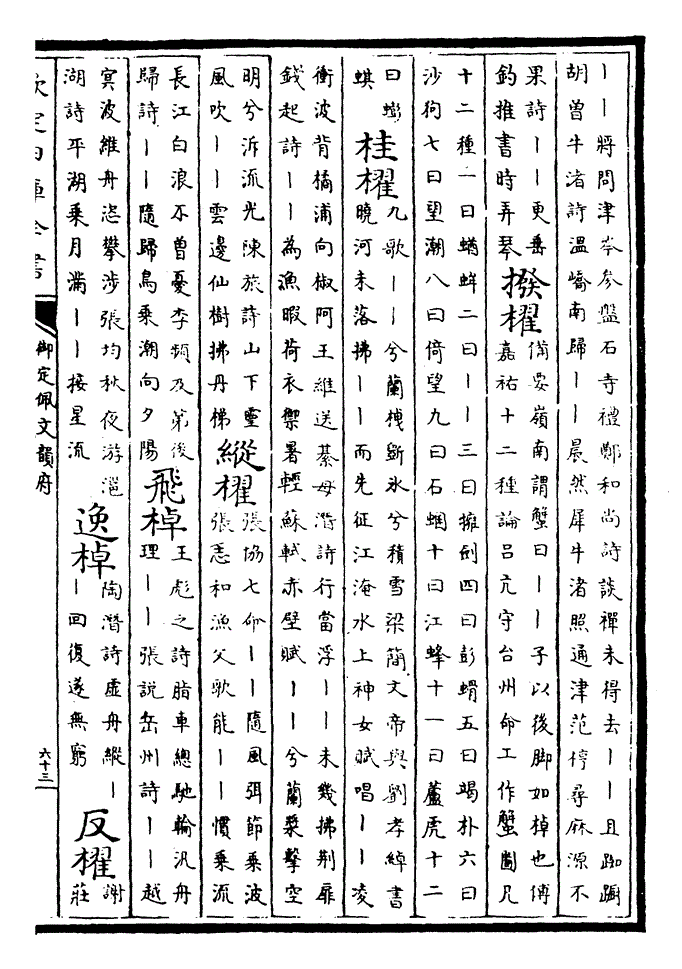 丨丨將問津岑參盤石寺禮鄭和尚詩談禪未得去丨丨且踟蹰
胡曾牛渚詩溫嶠南歸丨丨晨然犀牛渚照通津范梈尋麻源不
果詩丨丨更岳
釣推書時弄琴
撥櫂
備要嶺南謂蟹曰丨丨子以後脚如棹也傅
嘉祐十二種論吕亢守台州命工作蟹圖凡
十二種一曰蝤蛑二曰丨丨三曰擁劍四曰彭蝟五曰竭朴六曰
沙狗七曰望潮八曰倚望九曰石蜠十曰江蜂十一曰蘆虎十二
曰蟛
蜞
桂櫂
九歌丨丨兮蘭枻斲氷兮積雪梁簡文帝與劉孝綽書
曉河未落拂丨丨而先征江淹水上神女賦唱丨丨凌
衝波背橘浦向椒阿王維送綦母潛詩行當浮丨丨未幾拂荆扉
錢起詩丨丨為漁暇荷衣禦暑輕蘇軾赤壁賦丨丨兮蘭槳擊空
明兮泝流光陳旅詩山下靈
風吹丨丨雲邊仙樹拂丹梯
縱櫂
張協七命丨丨隨風弭節乘波
張志和漁父歌能丨丨慣乘流
長江白浪不曾憂李頻及第後
歸詩丨丨隨歸鳥乘潮向夕陽
飛棹
王彪之詩脂車總馳輪汎舟
理丨丨張説岳州詩丨丨越
冥波維舟恣攀涉張均秋夜游灉
湖詩平湖乘月滿丨丨接星流
逸棹
陶潛詩虚舟縱丨
丨回復遂無窮
反櫂
謝
莊
欽定四庫全書
御定佩文韻府
六十三